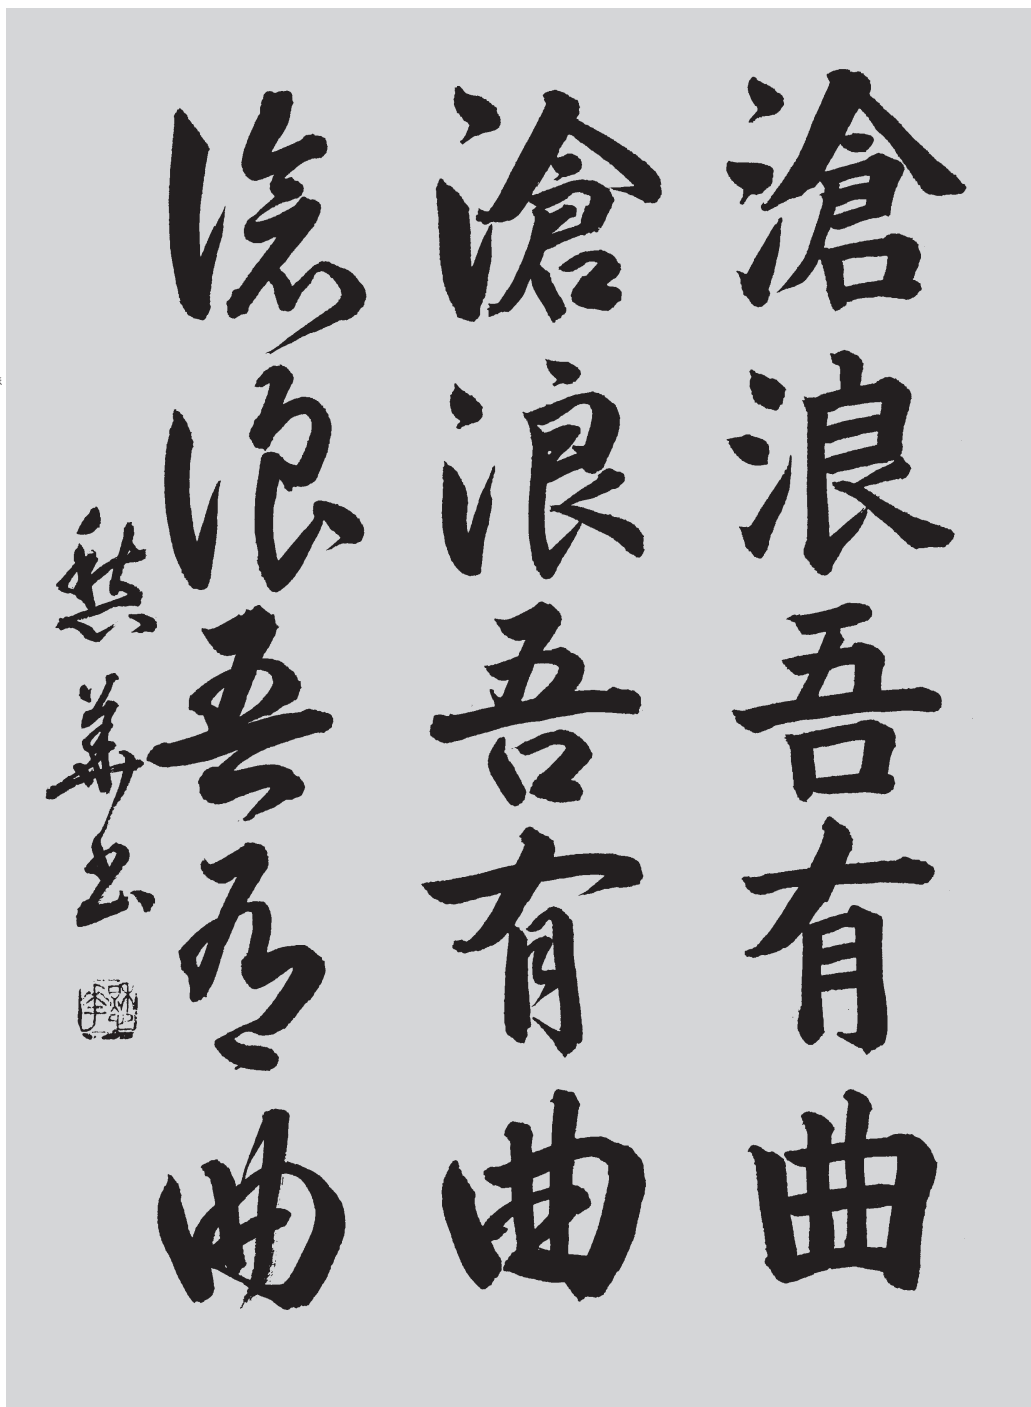 滄浪吾有曲
滄浪吾有曲
滄浪吾有曲
愁華書